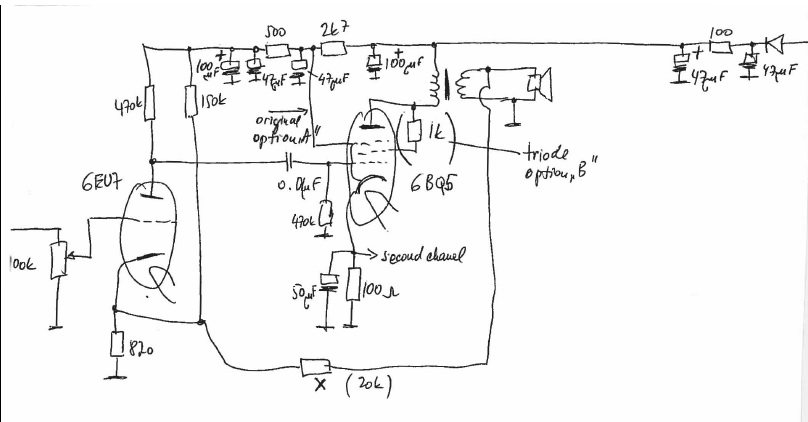 500
2k7
100
+
100µF
47µF
47µF
+
100µF
+
47µF
47µF
470k
150k
original
option„A"
1k
triode
option„B"
6EU7
0.01µF
6BQ5
470k
100k
second chanel
50µF
100Ω
820
X (20k)